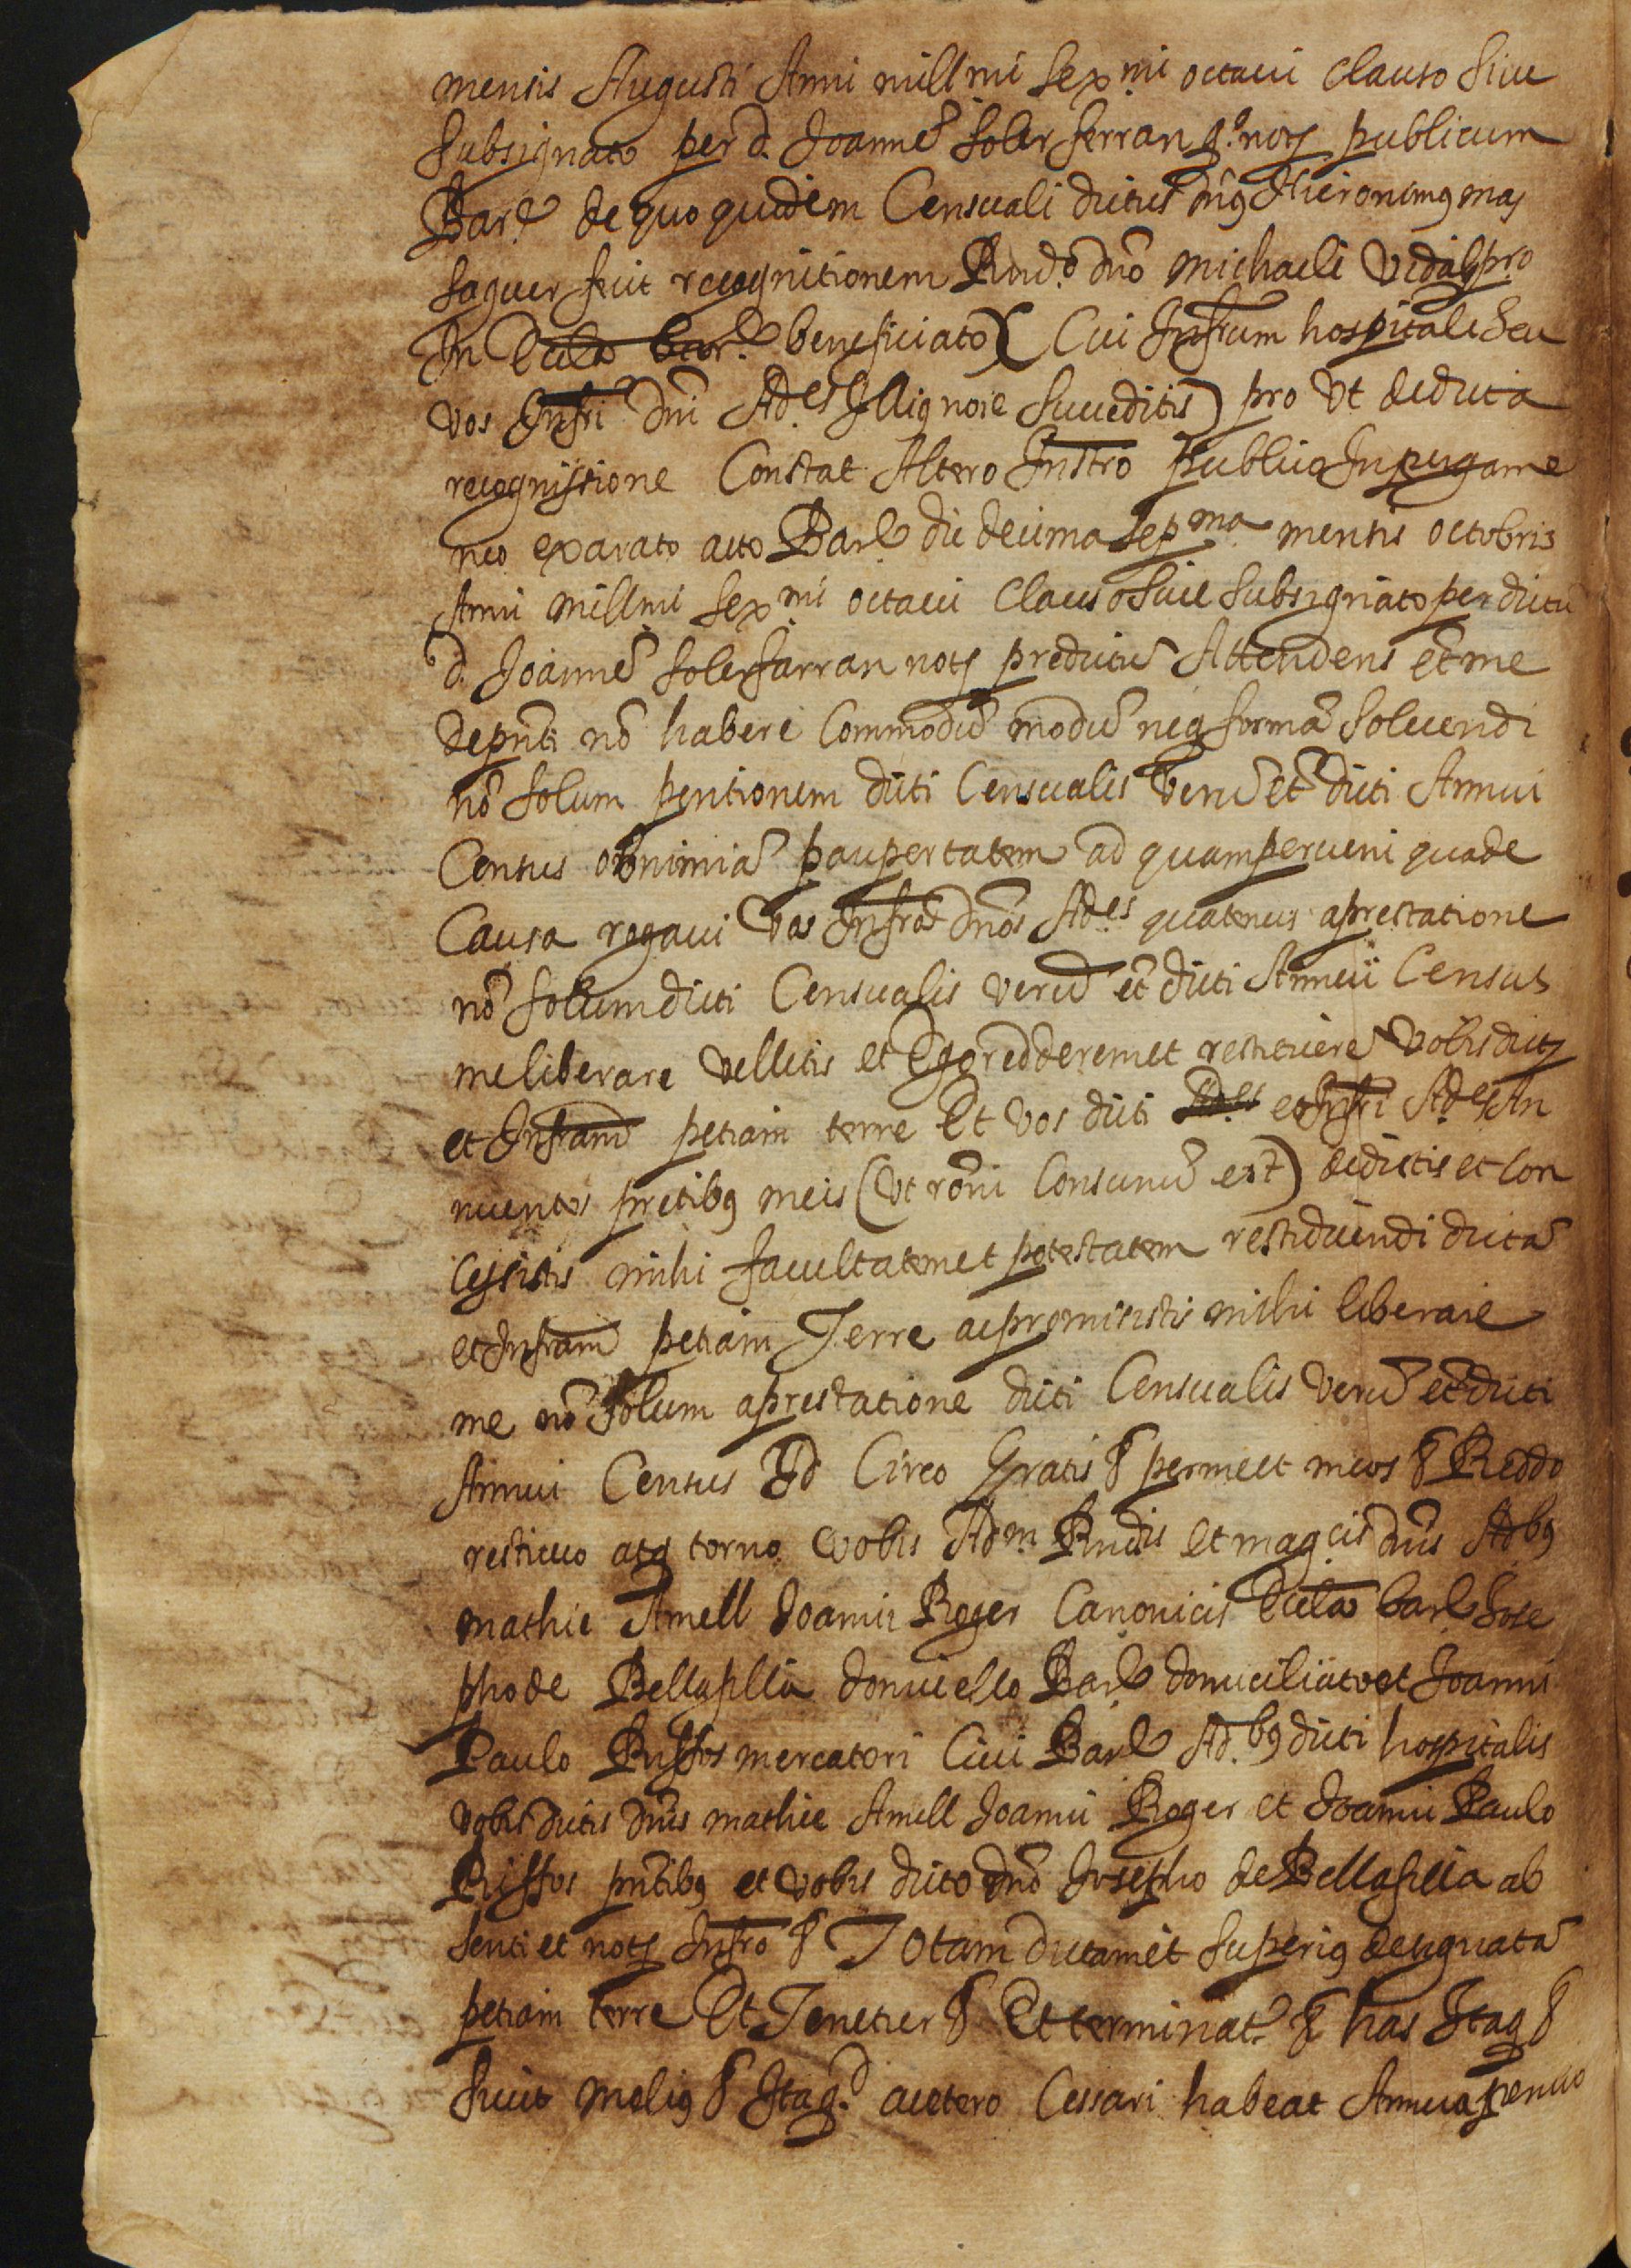 mensis Augusti Anni millmi sexmi octaui clauso siue
subsignato per d. Joannē Soler ferran q.º notʒ publicum
Barᵉ de quo quidem Censuali dictus dn̄s Hieronimꝰ mas
saguer fecit recognitionem Rndo. dn̄o Michaeli Vidal pro
In Eccla barᵉ beneficiato (Cui Infrum hospitale seu
vos Infri dn̄i Ad.es Illiq nore succeditis) pro vt de dicta
recognissione Constat Altero Instro publico In pergame
neo exarato acto Barᵉ die decima sepma mensis octobris
Anni millmi sexmi octaui clauso siue subsignato per dictū
d. Joannē Soler farran notʒ predictū Attendens et me
de pnti nō habere Commodū modū neqʒ formā soluendi
nō solum pentionem dicti Censualis verū et dicti Annui
Census ob nimiā paupertatem ad quam perueni qua de
Causa rogaui vos Infros dn̄os Ad.es quatenus a prestatione
nō solum dicti Censualis verū et dicti Annui Census
me liberare velletis et Ego redderem et restituere vobis dictʒ
et Infram petiam terre Et vos dicti et Infri Ad.es An
nuentes precibꝰ meis (vt rōni Consonū est) dedistis et con
cessistis mihi facultatem et potestatem restiduendi dictā
et Infram petiam Terre ac promisistis mihi liberare
me nō solum a prestatione dicti Censualis verū et dicti
Annui Census Id Circo Gratis & per me et meos & Reddo
restituo atqʒ torno vobis Adm. Rndis et magcis dn̄is Adbꝰ
Mathie Amell Joanni Roger Canonicis Eccla barᵉ Jose
pho de Bellafilla domicello Barᵉ domiciliato et Joanni
Paulo Riffos mercatori Ciui Barᵉ Ad.bꝰ dicti hospitalis
vobis dictis dn̄is mathie Amell Joanni Roger et Joanni Paulo
Riffos pn̄tibꝰ et vobis dicto dn̄o Josepho de Bellafilla ab
senti et notʒ Infro & Totam dictam et superiꝰ designatā
petiam terre Et Tenetur & Et terminat.ʳ & has Itaqʒ &
sicut meliꝰ & Itaqʒ.d a cetero Cessari habeat Annua pencio